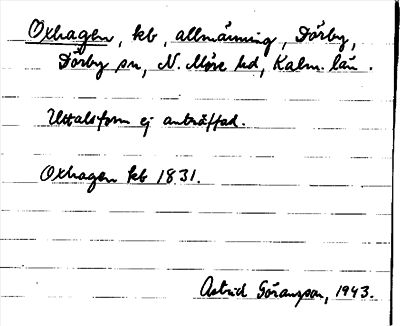 Oxhagen, kb, allmänning, Dörby,
Dörby sn, N. Möre hd, Kalm. län.
Uttalsform ej anträffad.
Oxhagen kb 1831.
Astrid Göransson, 1943.